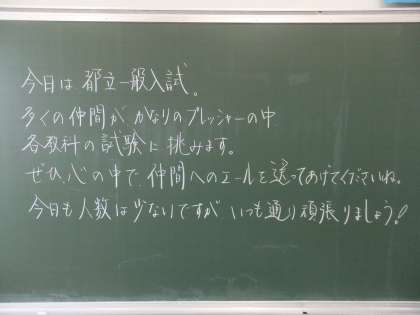 今日は都立一般入試。
多くの仲間がかなりのプレッシャーの中
各教科の試験に挑みます。
ぜひ心の中で仲間へのエールを送ってあげてくださいね。
今日も人数は少ないですがいつも通り頑張りましょう!